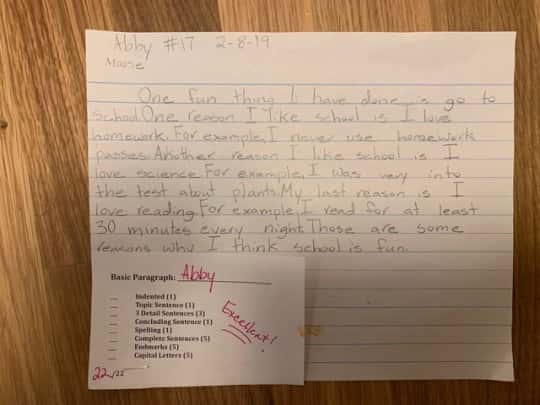 Abby #17 2-8-19
Moose
One fun thing I have done is go to
school. One reason I like school is I love
homework. For example, I never use homework
passes. Another reason I like school is I
love science. For example, I was very into
the test about plants. My last reason is I
love reading. For example, I read for at least
30 minutes every night. Those are some
reasons why I think school is fun.
Basic Paragraph: Abby
Indented (1)
Topic Sentence (1)
3 Detail Sentences (3)
Concluding Sentence (1)
Spelling (1)
Complete Sentences (5)
Endmarks (5)
Capital Letters (5)
Excellent!
22/22